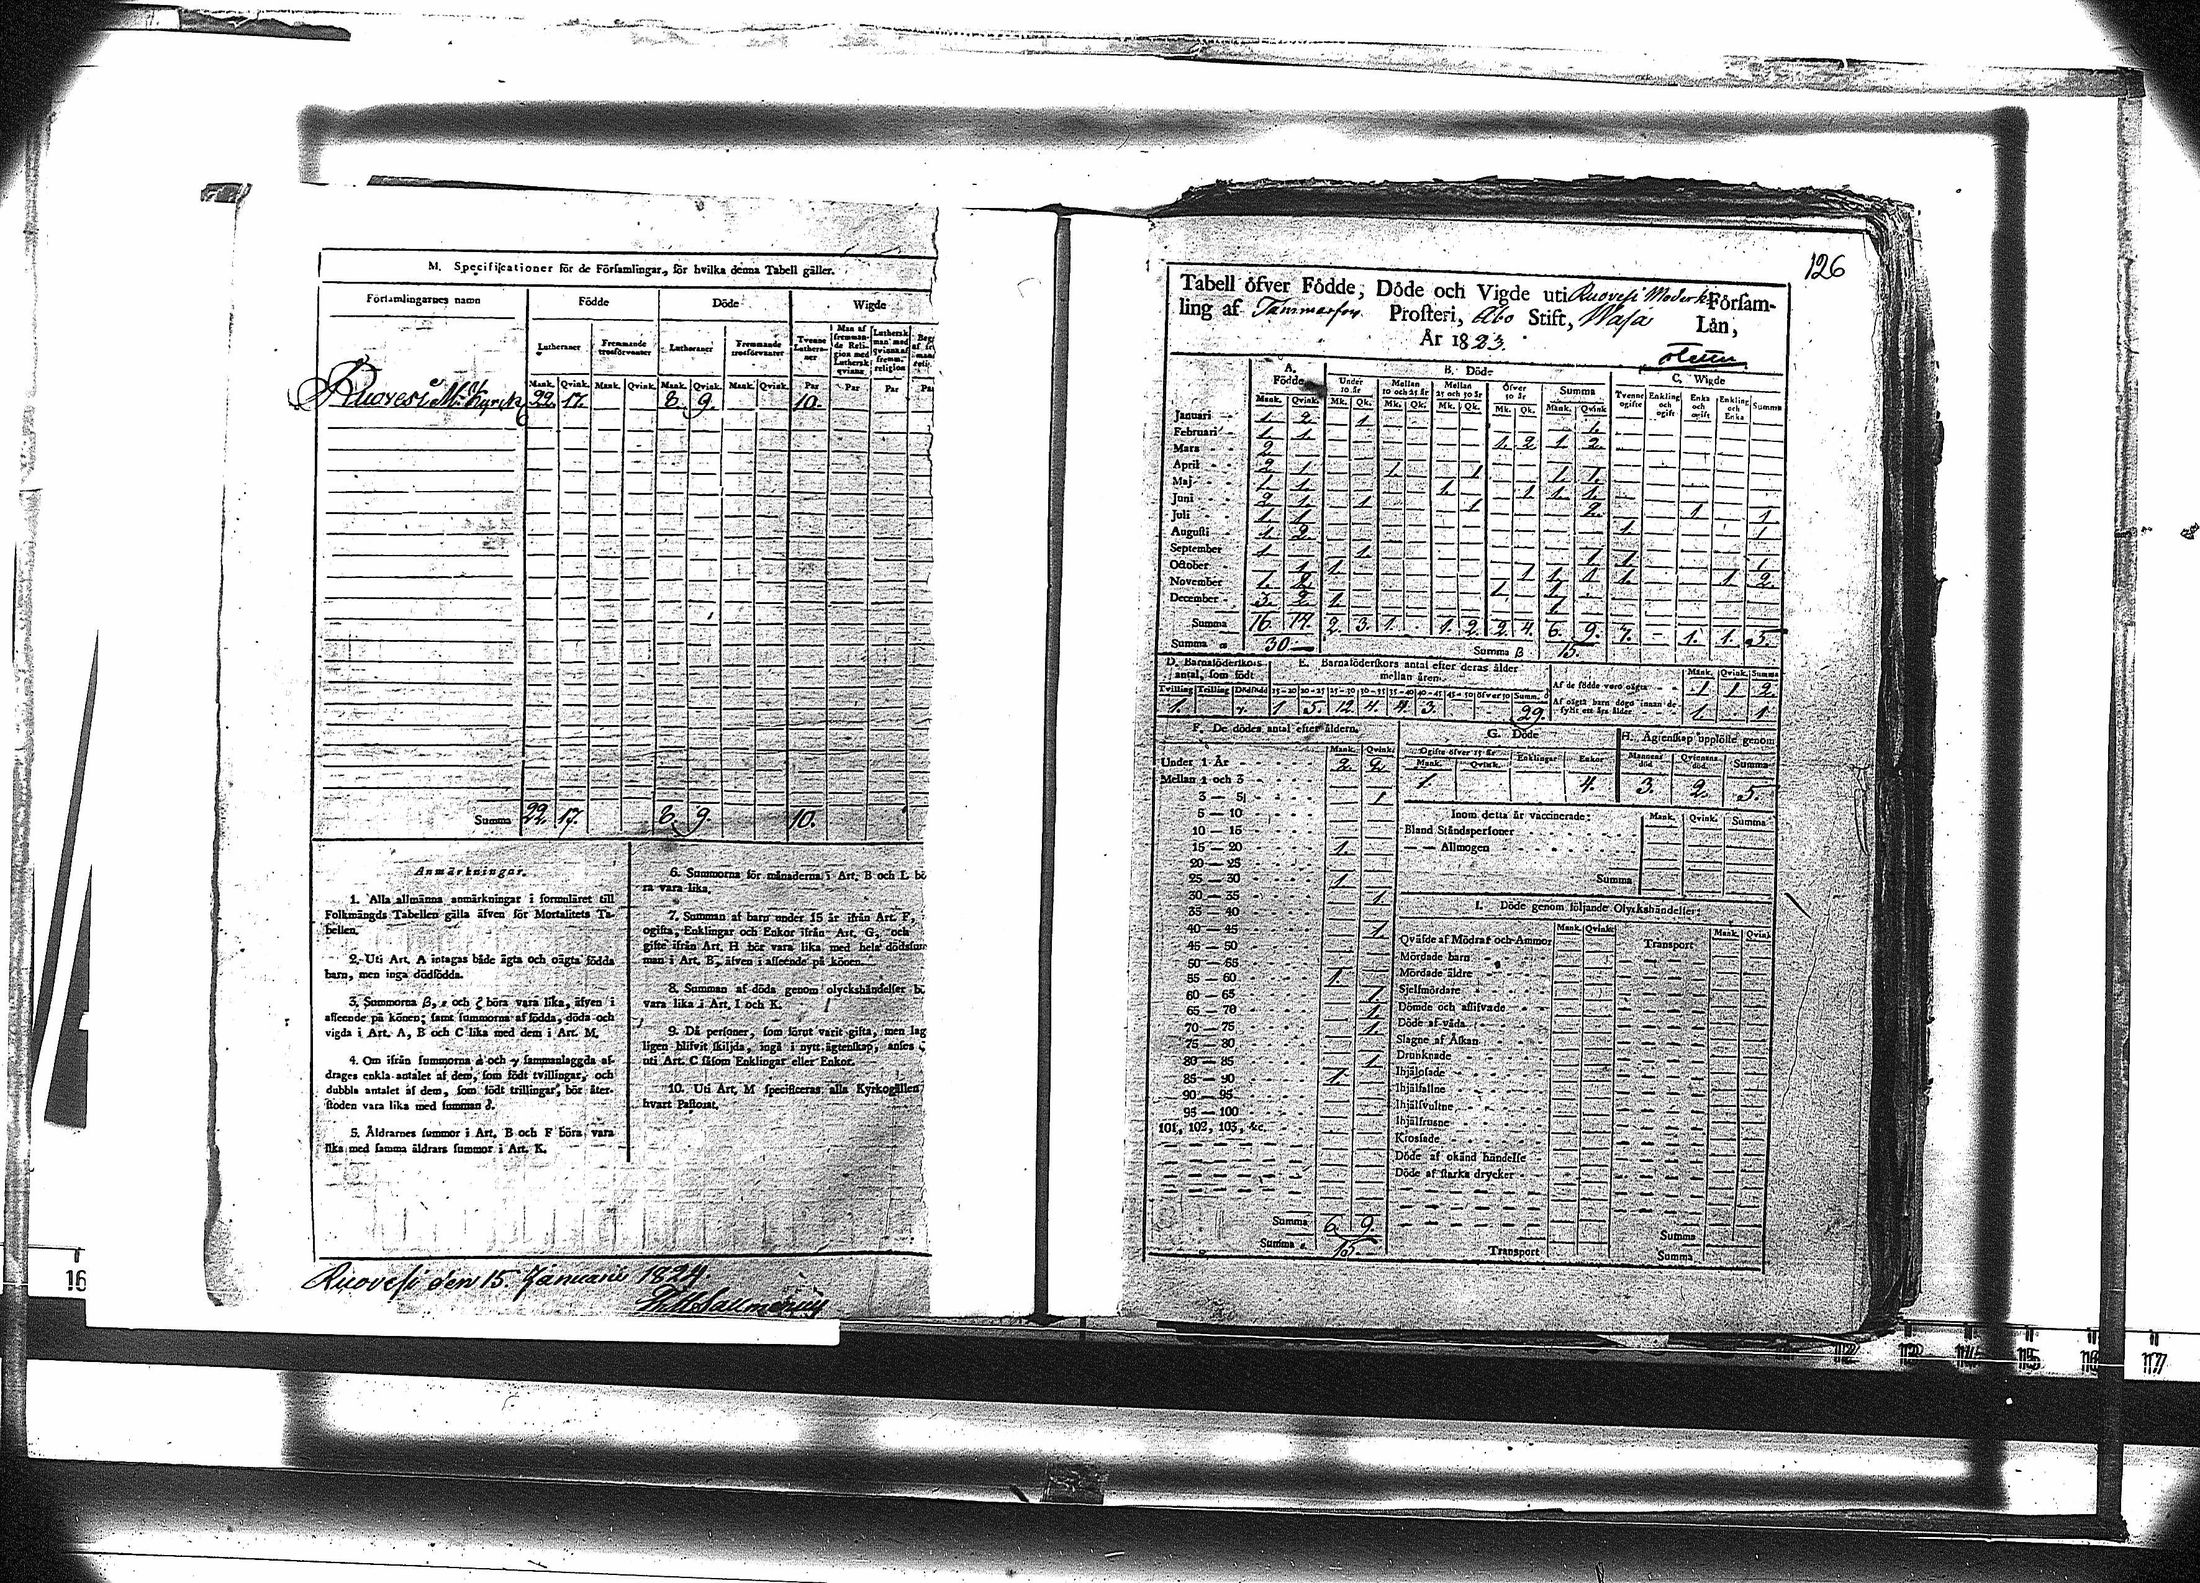 M. Specificationer för de Församlingar, för hvilka denna Tabell gäller.
Församlingarnes namn
Födde
Döde
Wigde
Lutheraner
Fremmande trosförvanter
Lutheraner
Fremmande trosförvanter
Tvenne Lutheraner
Man af fremmande Religion med Luthersk qvinna
Luthersk man med qvinna af fremm. religion
Mank. Qvink. Mank. Qvink. Mank. Qvink. Mank. Qvink. Par Par Par
Ruovesi M. Kyrcka 22. 17. 8. 9. 10.
Summa 22. 17. 8. 9. 10.
Anmärkningar.
1. Alla allmänna anmärkningar i formuläret till
Folkmängds Tabellen gälla äfven för Mortalitets Ta-
bellen.
2. Uti Art. A intagas både ägta och oägta födda
barn, men inga dödfödda.
3. Summorna β, ε och ζ böra vara lika, äfven i
afseende på könen; samt summorna af födda, döda och
vigda i Art. A, B och C lika med dem i Art. M.
4. Om ifrån summorna α och γ sammanlaggda af-
drages enkla antalet af dem, som födt tvillingar, och
dubbla antalet af dem, som födt trillingar, bör åter-
stoden vara lika med summan δ.
5. Åldrarnes summor i Art. B och F böra vara
lika med samma åldrars summor i Art. K.
6. Summorna för månaderna i Art. B och L bö
ra vara lika.
7. Summan af barn under 15 år ifrån Art. F,
ogifta, Enklingar och Enkor ifrån Art. G, och
gifte ifrån Art. H bör vara lika med hela dödssum
man i Art. B, äfven i afseende på könen.
8. Summan af döda genom olyckshändelser b
vara lika i Art. I och K.
9. Då personer, som förut varit gifta, men lag
ligen blifvit skiljda, ingå i nytt ägtenskap, anses
uti Art. C såsom Enklingar eller Enkor.
10. Uti Art. M specificeras alla Kyrkogällen
hvart Pastorat.
Ruovesi den 15. Januarii 1824.
126
Tabell öfver Födde, Döde och Vigde uti Ruovesi Moderk. Försam-
ling af Tammerfors Prosteri, Åbo Stift, Wasa Län,
År 1823.
A. Födde
B. Döde
C. Wigde
Under 10 år
Mellan 10 och 25 år
Mellan 25 och 50 år
Öfver 50 år
Summa
Tvenne ogifte
Enkling och ogift
Enka och ogift
Enkling och Enka
Summa
Mank. Qvink. Mk. Qk. Mk. Qk. Mk. Qk. Mk. Qk. Mank. Qvink
Januari 1. 2. 1. 1.
Februari 1. 1. 1. 2. 1. 2.
Mars 2.
April 2. 1. 1. 1. 1. 1.
Maj 1. 1. 1. 1. 1. 1.
Juni 2. 1. 1. 1. 2. 1. 1.
Juli 1. 1. 1. 1
Augusti 1. 2.
September 1. 1. 1 1. 1.
October 1. 1. 1 1. 1 1. 1. 2.
November 1. 2. 1. 1.
December 3. 2. 1. 1.
Summa 16. 14. 2. 3. 1. 1. 2. 2. 4. 6. 9. 1. 1.
Summa α 30
Summa β 15.
D. Barnaföderskors antal, som födt
E. Barnaföderskors antal efter deras ålder mellan åren
Mank. Qvink. Summa
Tvilling Trilling Dödfödd 15-20 20-25 25-30 30-35 35-40 40-45 45-50 öfver 50 Summ. δ
1. 1 5. 12. 4. 4. 3. 29.
Af de födde voro oägta 1 1 2.
Af oägta barn dogo innan de fyllt ett års ålder 1. 1.
F. De dödes antal efter åldern.
Mank. Qvink.
Under 1 År 2. 2.
Mellan 1 och 3
3 — 5 1
5 — 10
10 — 15
15 — 20 1.
20 — 25
25 — 30 1.
30 — 35 1.
35 — 40
40 — 45 1.
45 — 50
50 — 55
55 — 60 1.
60 — 65 1.
65 — 70 1.
70 — 75 1.
75 — 80
80 — 85 1
85 — 90 1.
90 — 95
95 — 100
101, 102, 103, &c.
Summa 6. 9.
Summa ε. 15.
G. Döde
Ogifte öfver 15 år
Enklingar
Enkor
Mank. Qvink.
1. 4.
H. Ägtenskap upplöste genom
Mannens död. Qvinnans död. Summa
3. 2. 5.
Inom detta år vaccinerade:
Mank. Qvink. Summa
Bland Ståndspersoner
— — Allmogen
Summa
I. Döde genom följande Olyckshändelser:
Mank. Qvink.
Transport
Mank. Qvink
Qväfde af Mödrar och Ammor
Mördade barn
Mördade äldre
Sjelfmördare
Dömde och aflifvade
Döde af våda
Slagne af Åskan
Drunknade
Ihjälosade
Ihjälfallne
Ihjälsvultne
Ihjälfrusne
Krossade
Döde af okänd händelse
Döde af starka drycker
Transport
Summa
Summa
16
112 113 114 115 116 117